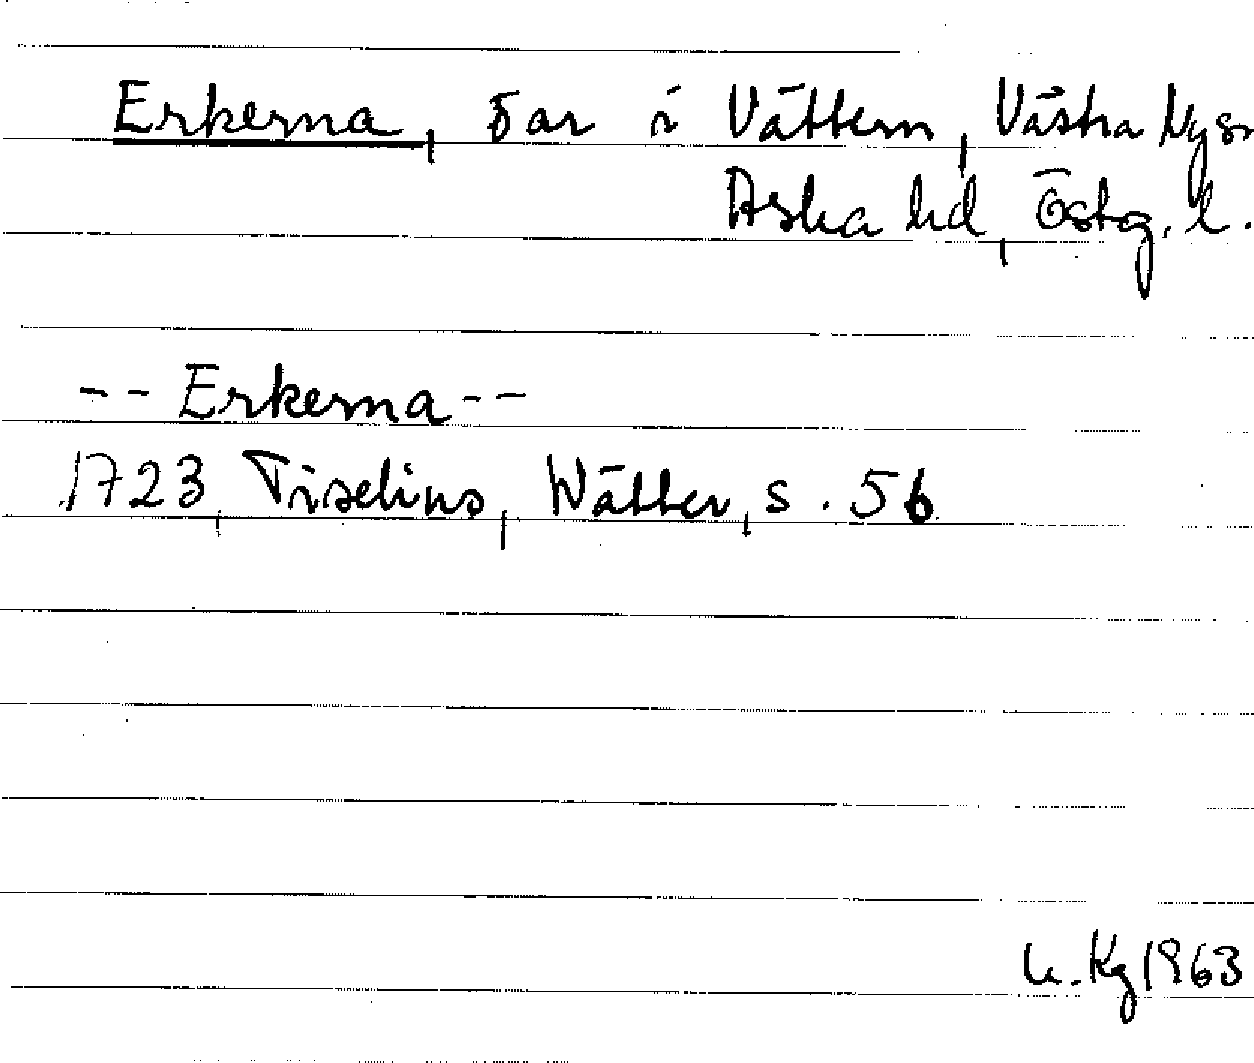 Erkerna, öar i Vättern, Västra Ny sn
Aska hd, Östg. l.
-- Erkerna --
1723, Tiselius, Wätter, s. 56
U. Kg 1963